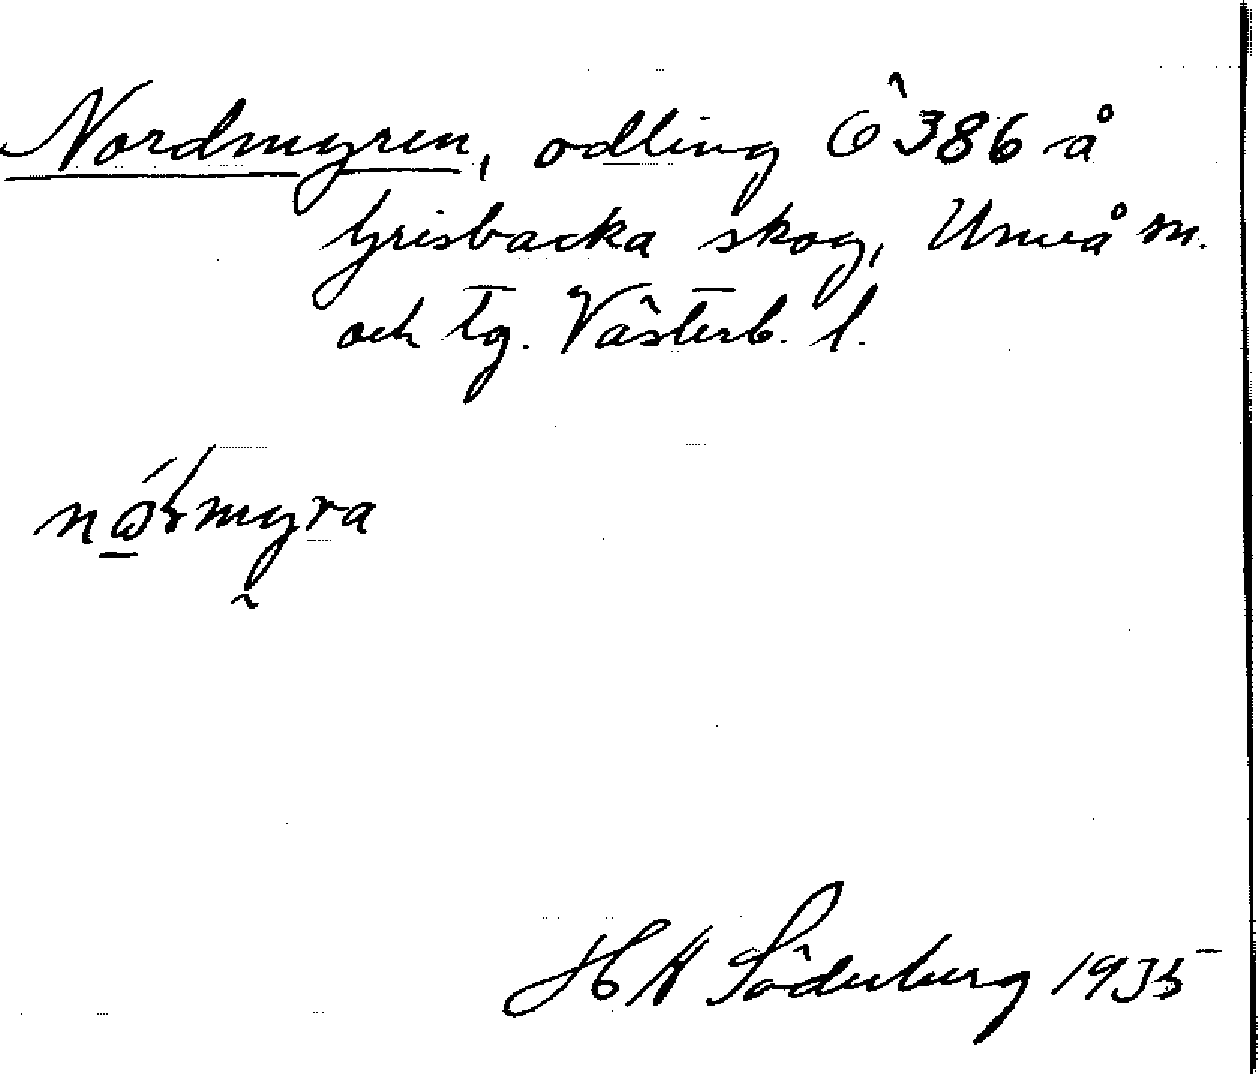 Nordmyren, odling Ö 386 å
Grisbacka skog, Umeå sn.
och tg. Västerb. l.
myra
H A Söderberg 1935